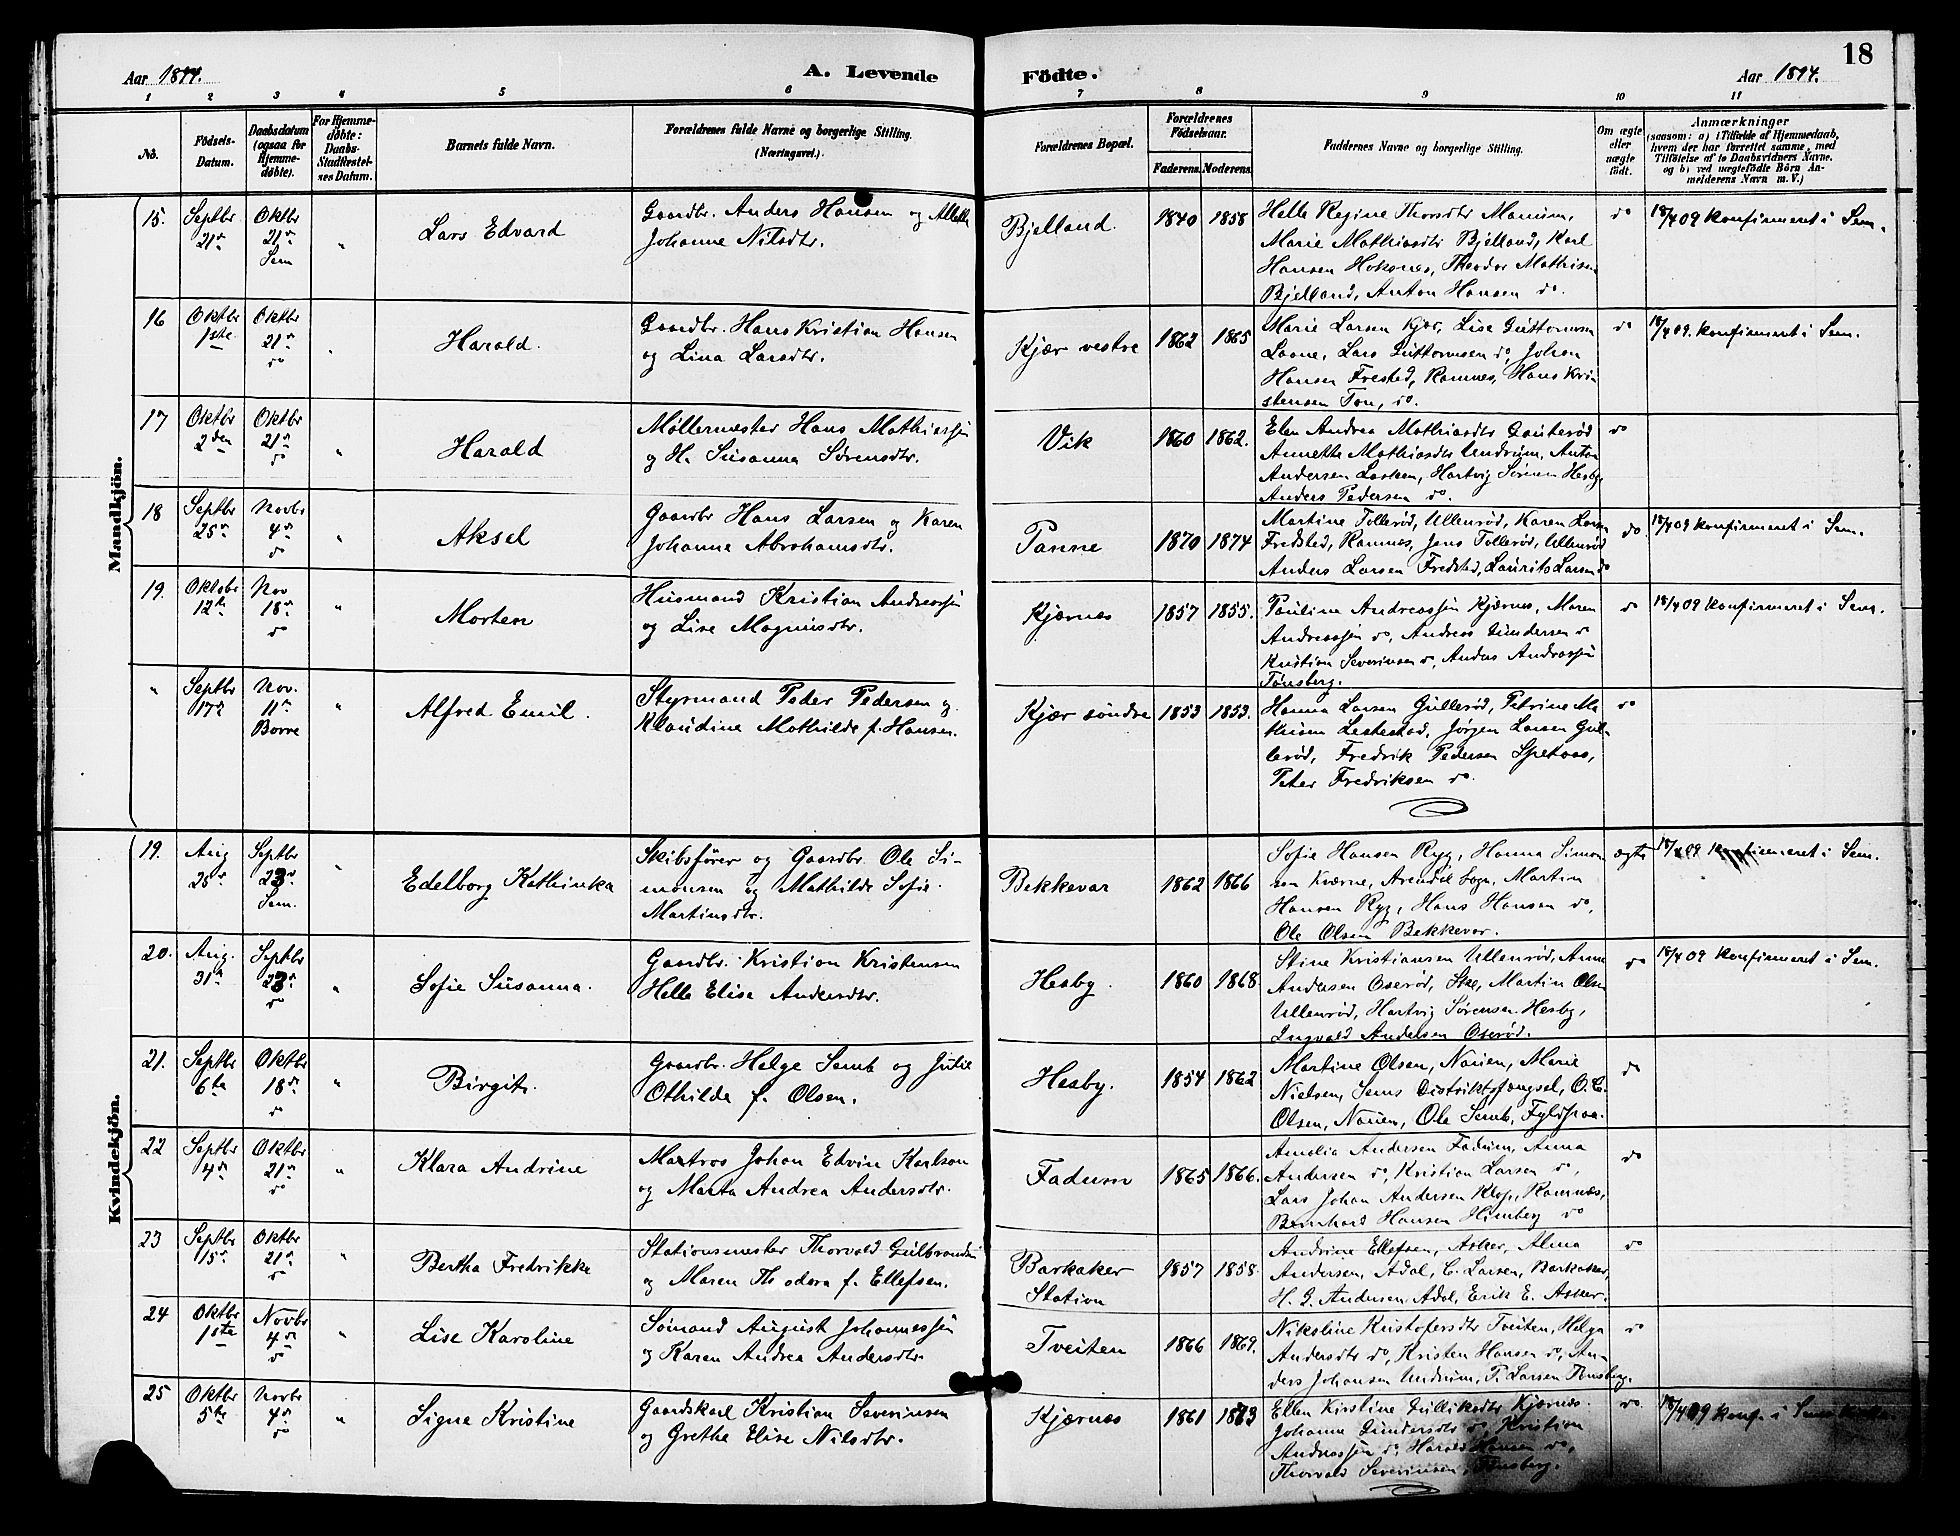 18
Aar 1894.
A. Levende
Födte.
Aar 1894.
1 2 3 4 5 6 7 8 9 10 11
No.
Födsels-Datum.
Daabsdatum (ogsaa for Hjemmedöbte).
For Hjemmedöbte: Daabs-Stadfæstelses Datum.
Barnets fulde Navn.
Forældrenes fulde Navne og borgerlige Stilling. (Næringsvei.)
Forældrenes Bopæl.
Forældrenes Födselsaar.
Faderens. Moderens.
Faddernes Navne og borgerlige Stilling.
Om ægte eller uægte födt.
Anmærkninger
(saasom: a) i Tilfælde af Hjemmedaab,
hvem der har forrettet samme, med
Tilföielse af to Daabsvidners Navne.
og b) ved uægtefödte Börn An-
melderens Navn m. V.)
Mandkjön.
15. Septbr 21de Oktbr 21de Sem " Lars Edvard
Gaardbr. Anders Hansen og Alette
Johanne Nilsdtr.
Bjelland. 1840 1858
Helle Regine Thorsdtr Manum,
Marie Mathiasdtr Bjelland, Karl
Hansen Hoksnes, Theodor Mathisen
Bjelland, Anton Hansen do.
do
18/4 09 konfirmeret i Sem.
16 Oktbr 1ste Oktbr 21de do " Harald.
Gaardbr. Hans Kristian Hansen
og Lina Larsdtr.
Kjær vestre 1862 1865
Marie Larsen Kjær, Lise Guttormsen
Laane, Lars Guttormsen do, Johan
Hansen Frested, Ramnes, Hans Kri-
stensen Ton, do.
do
18/4 09. konfirmeret i Sem.
17 Oktbr 2den Oktbr 21de do " Harald
Møllermester Hans Mathiassen
og H. Susanna Sørensdtr.
Vik 1860 1862.
Elen Andrea Mathiasdtr Gauterød
Annette Mathiasdtr Undrum, Anton
Andersen Lasken, Hartvig Sørensen Hesby,
Anders Pedersen do.
do
18 Septbr 25de Novbr 4de do " Aksel
Gaardbr Hans Larsen og Karen
Johanne Abrahamsdtr.
Panne 1870 1874
Martine Tollerød, Ullerød, Karen Larsen
Fredsted, Ramnes, Jens Tollerød, Ullerød
Anders Larsen Fredsted, Laurits Larsen do
do.
18/4 09 konfirmeret i Sem.
19. Oktobr 12te Nov 18de do " Morten
Husmand Kristian Andreassen
og Lise Magnusdtr.
Kjærnes 1857 1855.
Pauline Andreassen Kjærnes, Maren
Andreassen do, Andreas Gundersen do
Kristian Severinsen do, Anders Andreassen
Tønsberg.
do
18/4 09 konfirmeret i Sem.
" Septbr 17de Nov. 11te Borre " Alfred Emil.
Styrmand Peder Pedersen og
Klaudine Mathilde f. Hansen.
Kjær søndre 1853 1853.
Hanna Larsen Gullerød, Petrine Ma-
thisen Lestestad, Jørgen Larsen Gul-
lerød, Fredrik Pedersen Spetaas,
Peter Fredriksen do.
do
Kvindekjön.
19. Aug 28de Septbr 23de Sem. " Edelborg Kathinka
Skibsfører og Gaardbr. Ole Si-
monsen og Mathilde Sofie
Martinsdtr.
Bekkevar 1862 1866
Sofie Hansen Ryg, Hanna Simon-
sen Kverne, Arendal Sogn, Martin
Hansen Ryg, Hans Hansen do,
Ole Olsen Bekkevar.
ægte
18/4 09 konfirmeret i Sem.
20. Aug. 31te Septbr 23de do " Sofie Susanna.
Gaardbr. Kristian Kristensen
Helle Elise Andersdtr.
Hesby. 1860 1868
Stine Kristiansen Ullerød, Anne
Andersen Oserød, Ske, Martin Olsen
Ullerød, Hartvig Sørensen Hesby,
Ingvald Andersen Oserød.
do
18/4 09 konfirmeret i Sem.
21. Septbr 6te Oktbr 18de do " Birgit.
Gaardbr. Helge Semb og Julie
Othilda f. Olsen.
Hesby. 1854 1862
Martine Olsen, Nauen, Marie
Nielsen, Sems Distriktsfængsel, O. C.
Olsen, Nauen, Ole Semb, Fyldpaa.
do
22 Septbr 4de Oktbr 21de do " Klara Andrine
Matros Johan Edvin Karlson
og Marta Andrea Andersdtr.
Fadum 1865 1866.
Amalia Andersen Fadum, Anna
Andersen do, Kristian Larsen do,
Lars Johan Andersen Klop, Ramnes,
Bernhard Hansen Himberg do
do
23 Septbr 15de Oktbr 21de do " Bertha Fredrikke
Stationsmester Thorvald Gulbrandsen
og Maren Theodora f. Ellefsen.
Barkaker
Station
1857 1858.
Andrine Ellefsen, Asker, Alma
Andersen, Adal, C. Larsen, Barkaker,
H. G. Andersen Adal, Erik E. Asker.
do
24 Oktbr 1ste Novbr 4de do " Lise Karoline
Sømand August Johannessen
og Karen Andrea Andersdtr.
Tveiten 1866 1869.
Nikoline Kristofersdtr Tveiten, Helga
Andersdtr do, Kristen Hansen do, An-
ders Johansen Undrum, P. Larsen Tønsberg.
do
25 Oktbr 5te Novbr 4de do " Signe Kristine
Gaardskarl Kristian Severinsen
og Grethe Elise Nilsdtr.
Kjærnes 1861 1863
Ellen Kirstine Gulliksdtr Kjærnes.
Johanne Gundersdtr do, Kristian
Andreassen do, Harald Hansen do,
Thorvald Severinsen, Tønsberg.
do.
18/4 09 konf. i Sems kirke.